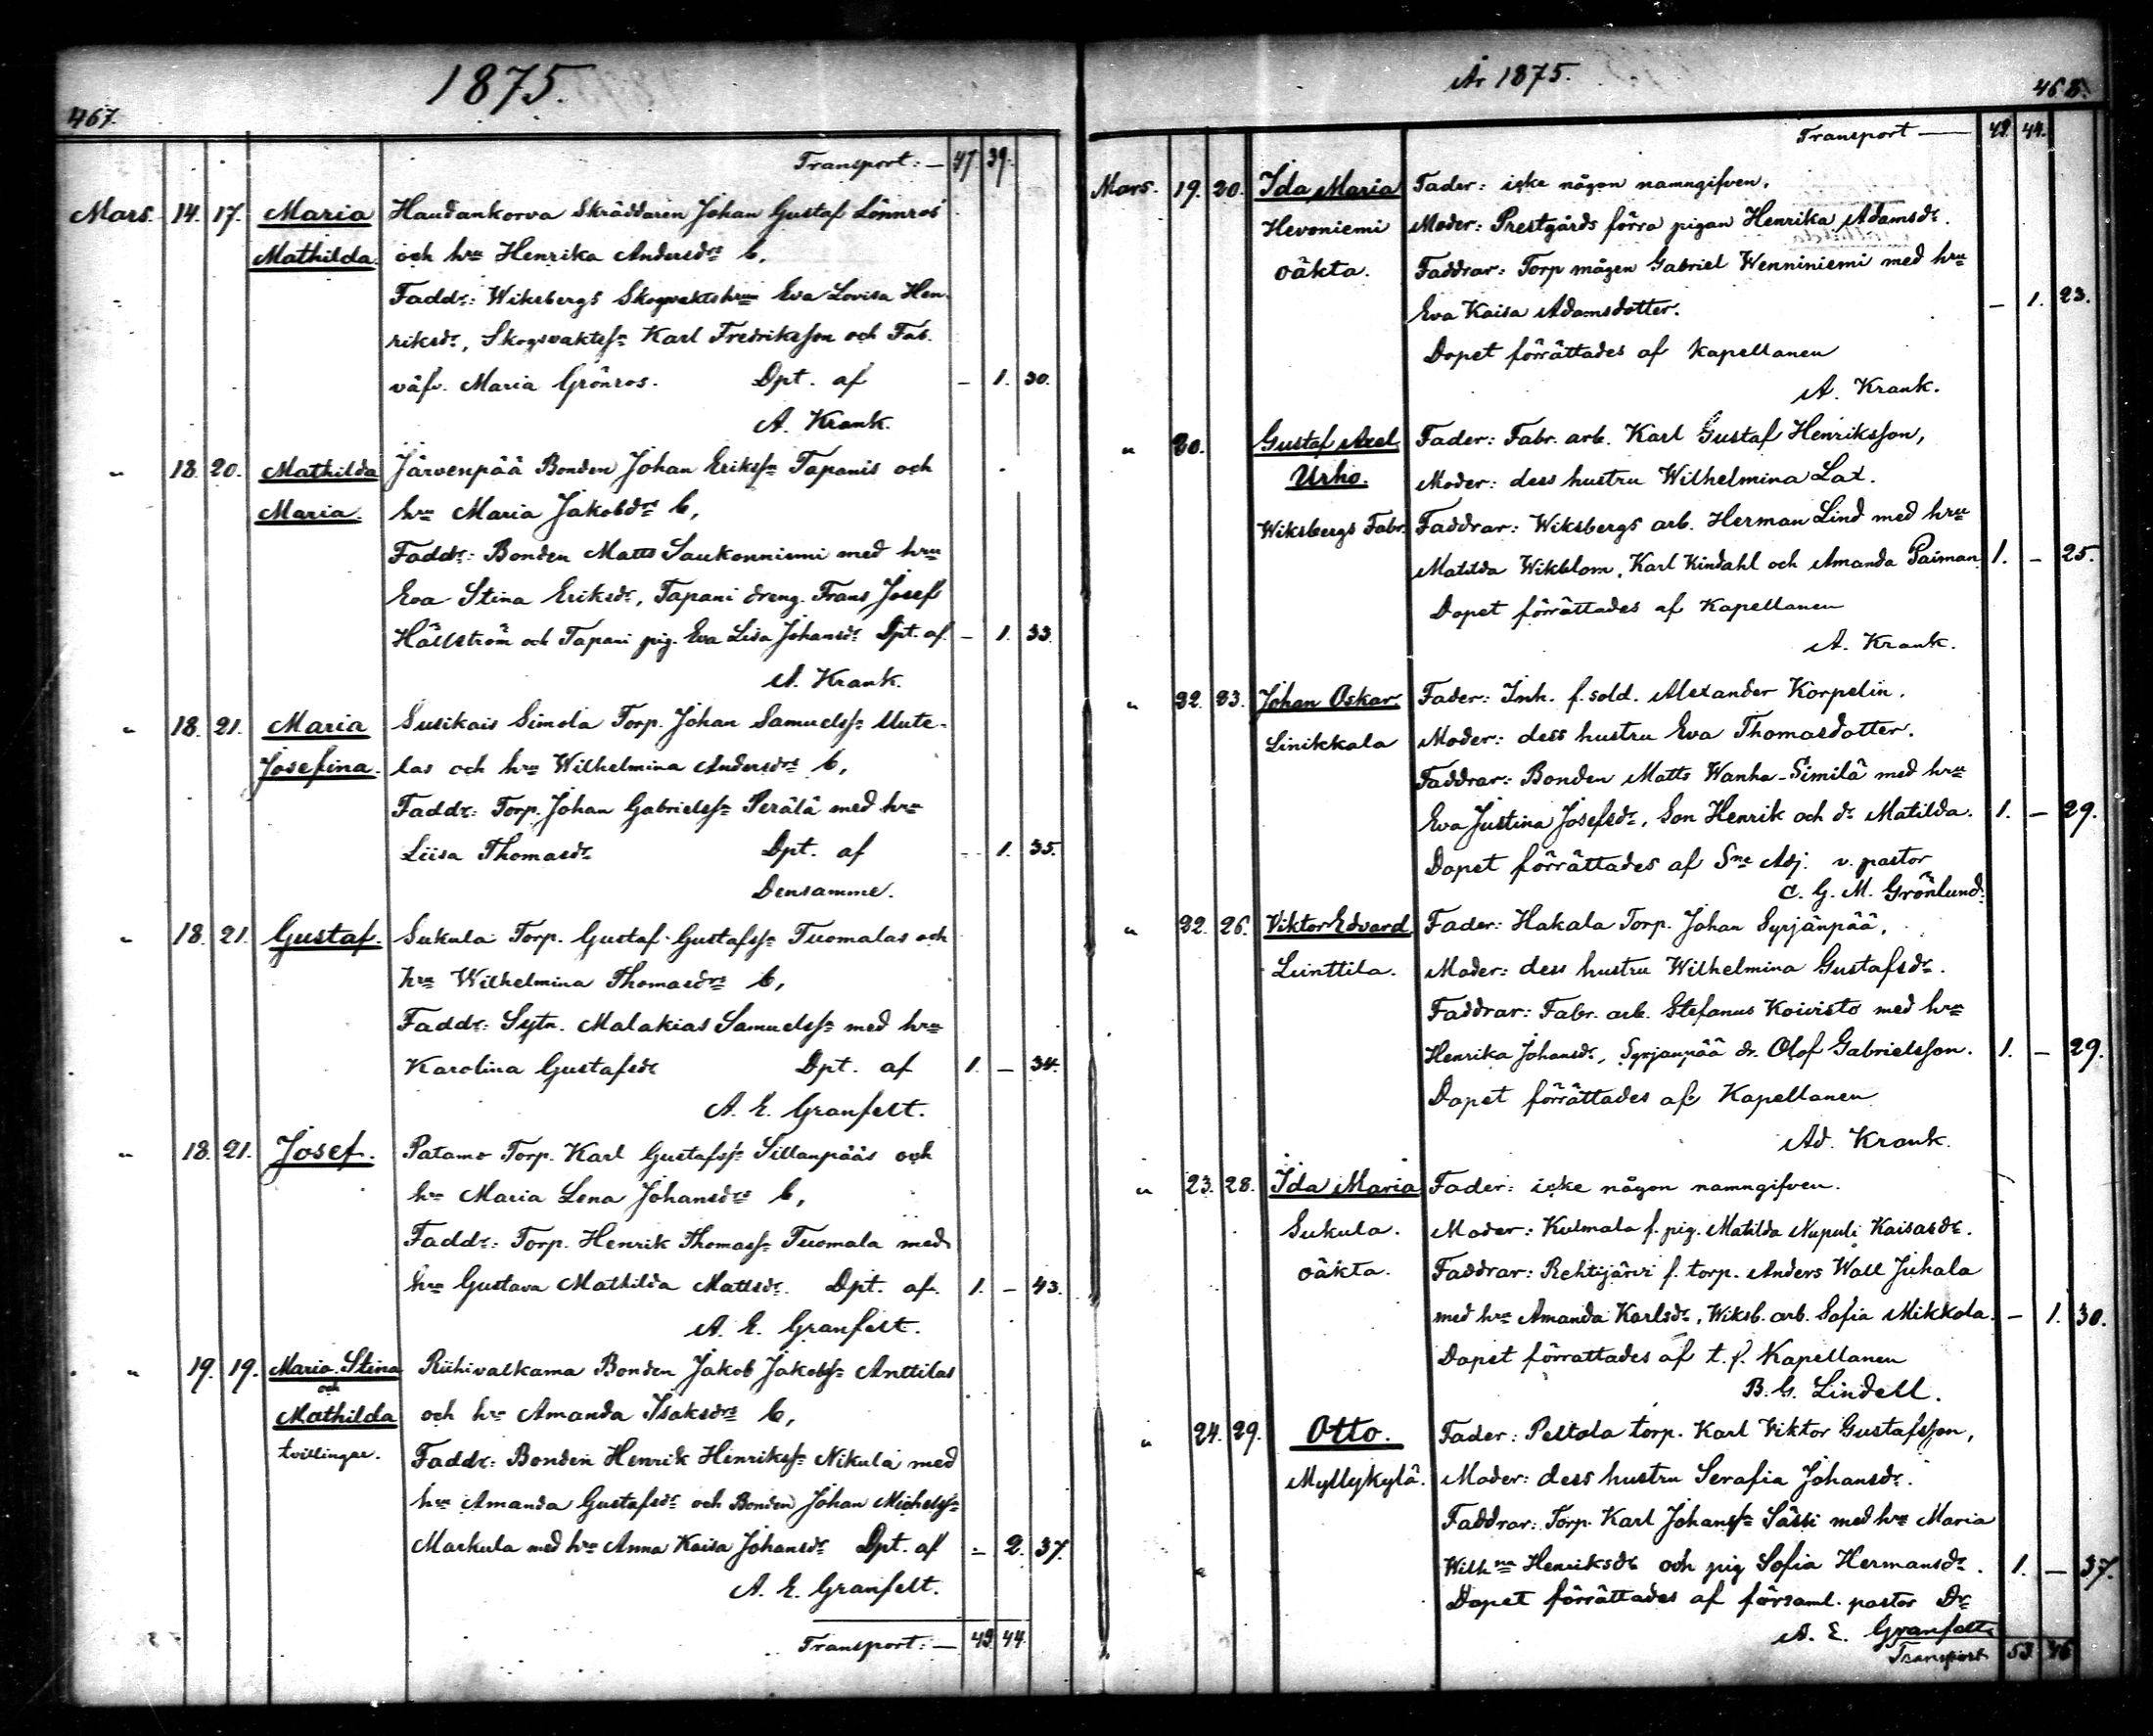 1875.
467.
Transport: — 47 39.
Mars. 14. 17. Maria Haudankorva Skräddaren Johan Gustaf Lönnros
Mathilda. och hru Henrika Andersdrs b,
Faddr: Wiksbergs Skogvaktshru Eva Lovisa Hen-
riksdr, Skogsvaktss: Karl Fredriksson och Fab.
väfv. Maria Grönros. Dpt. af — 1. 30.
A. Krank.
" 18. 20. Mathilda Järvenpää Bonden Johan Erikss: Tapanis och
Maria. hru Maria Jakobdrs b,
Faddr: Bonden Matts Saukonniemi med hru
Eva Stina Eriksdr, Tapani dreng. Frans Josef
Hällström och Tapani pig. Eva Lisa Johansdr Dpt. af. — 1. 33.
A. Krank.
" 18. 21. Maria Susikais Simola Torp. Johan Samuelss: Uute-
Josefina. las och hru Wilhelmina Andersdrs b,
Faddr: Torp. Johan Gabrielss: Perälä med hru
Liisa Thomasdr Dpt. af — 1. 35.
Densamme.
" 18. 21. Gustaf. Sukula Torp. Gustaf Gustafss: Tuomalas och
hru Wilhelmina Thomasdrs b,
Faddr: Sytn. Malakias Samuelss: med hru
Karolina Gustafsdr Dpt. af 1. — 34.
A. E. Granfelt.
" 18. 21. Josef. Patamo Torp. Karl Gustafss: Sillanpääs och
hru Maria Lena Johansdrs b,
Faddr: Torp. Henrik Thomass: Tuomala med
hru Gustava Mathilda Mattsdr. Dpt. af. 1. — 43.
A. E. Granfelt.
" 19. 19. Maria Stina Riihivalkama Bonden Jakob Jakobss: Anttilas
och
Mathilda och hru Amanda Isaksdrs b,
tvillingar. Faddr: Bonden Henrik Henrikss: Nikula med
hru Amanda Gustafsdr och Bonden Johan Michelss:
Markula med hru Anna Kaisa Johansdr Dpt. af — 2. 37.
A. E. Granfelt.
Transport: — 49. 44.
År 1875.
468.
Transport — 49. 44.
Mars. 19. 20. Ida Maria Fader: icke någon namngifven.
Hevoniemi Moder: Prestgårds förra pigan Henrika Adamsdr.
oäkta. Faddrar: Torp mågen Gabriel Wenniniemi med hru
Eva Kaisa Adamsdotter. — 1. 23.
Dopet förrättades af Kapellanen
A. Krank.
" 20. Gustaf Axel Fader: Fabr. arb. Karl Gustaf Henriksson,
Urho. Moder: dess hustru Wilhelmina Lax.
Wiksbergs Fabr. Faddrar: Wiksbergs arb. Herman Lind med hru
Matilda Wikblom, Karl Kindahl och Amanda Paiman 1. — 25.
Dopet förrättades af Kapellanen
A. Krank.
" 22. 23. Johan Oskar. Fader: Inh. f. sold. Alexander Korpelin.
Linikkala Moder: dess hustru Eva Thomasdotter.
Faddrar: Bonden Matts Wanha-Similä med hru
Eva Justina Josefsdr, Son Henrik och dr Matilda. 1. — 29.
Dopet förrättades af Sne Adj. v. pastor
C. G. M. Grönlund.
" 22. 26. Viktor Edvard Fader: Hakala Torp. Johan Syrjänpää,
Lunttila. Moder: dess hustru Wilhelmina Gustafsdr.
Faddrar: Fabr. arb. Stefanus Koivisto med hru
Henrika Johansdr, Syrjanpää dr. Olof Gabrielsson. 1. — 29.
Dopet förrättades af Kapellanen
Ad. Krank.
" 23. 28. Ida Maria Fader: icke någon namngifven.
Sukula. Moder: Kulmala f. pig. Matilda Nupuli Kaisasdr.
oäkta. Faddrar: Rehtijärvi f. torp. Anders Wall Juhala
med hru Amanda Karlsdr, Wiksb. arb. Sofia Mikkola. — 1. 30.
Dopet förrattades af t. f. Kapellanen
B. G. Lindell.
" 24. 29. Otto. Fader: Peltola torp. Karl Viktor Gustafsson,
Myllykylä. Moder: dess hustru Serafia Johansdr.
Faddrar: Torp. Karl Johanss: Sässi med hru Maria
Wilhna Henriksdr och pig Sofia Hermansdr. 1. — 37.
Dopet förrättades af församl. pastor Dr
A. E. Granfelt.
Transport 53. 46